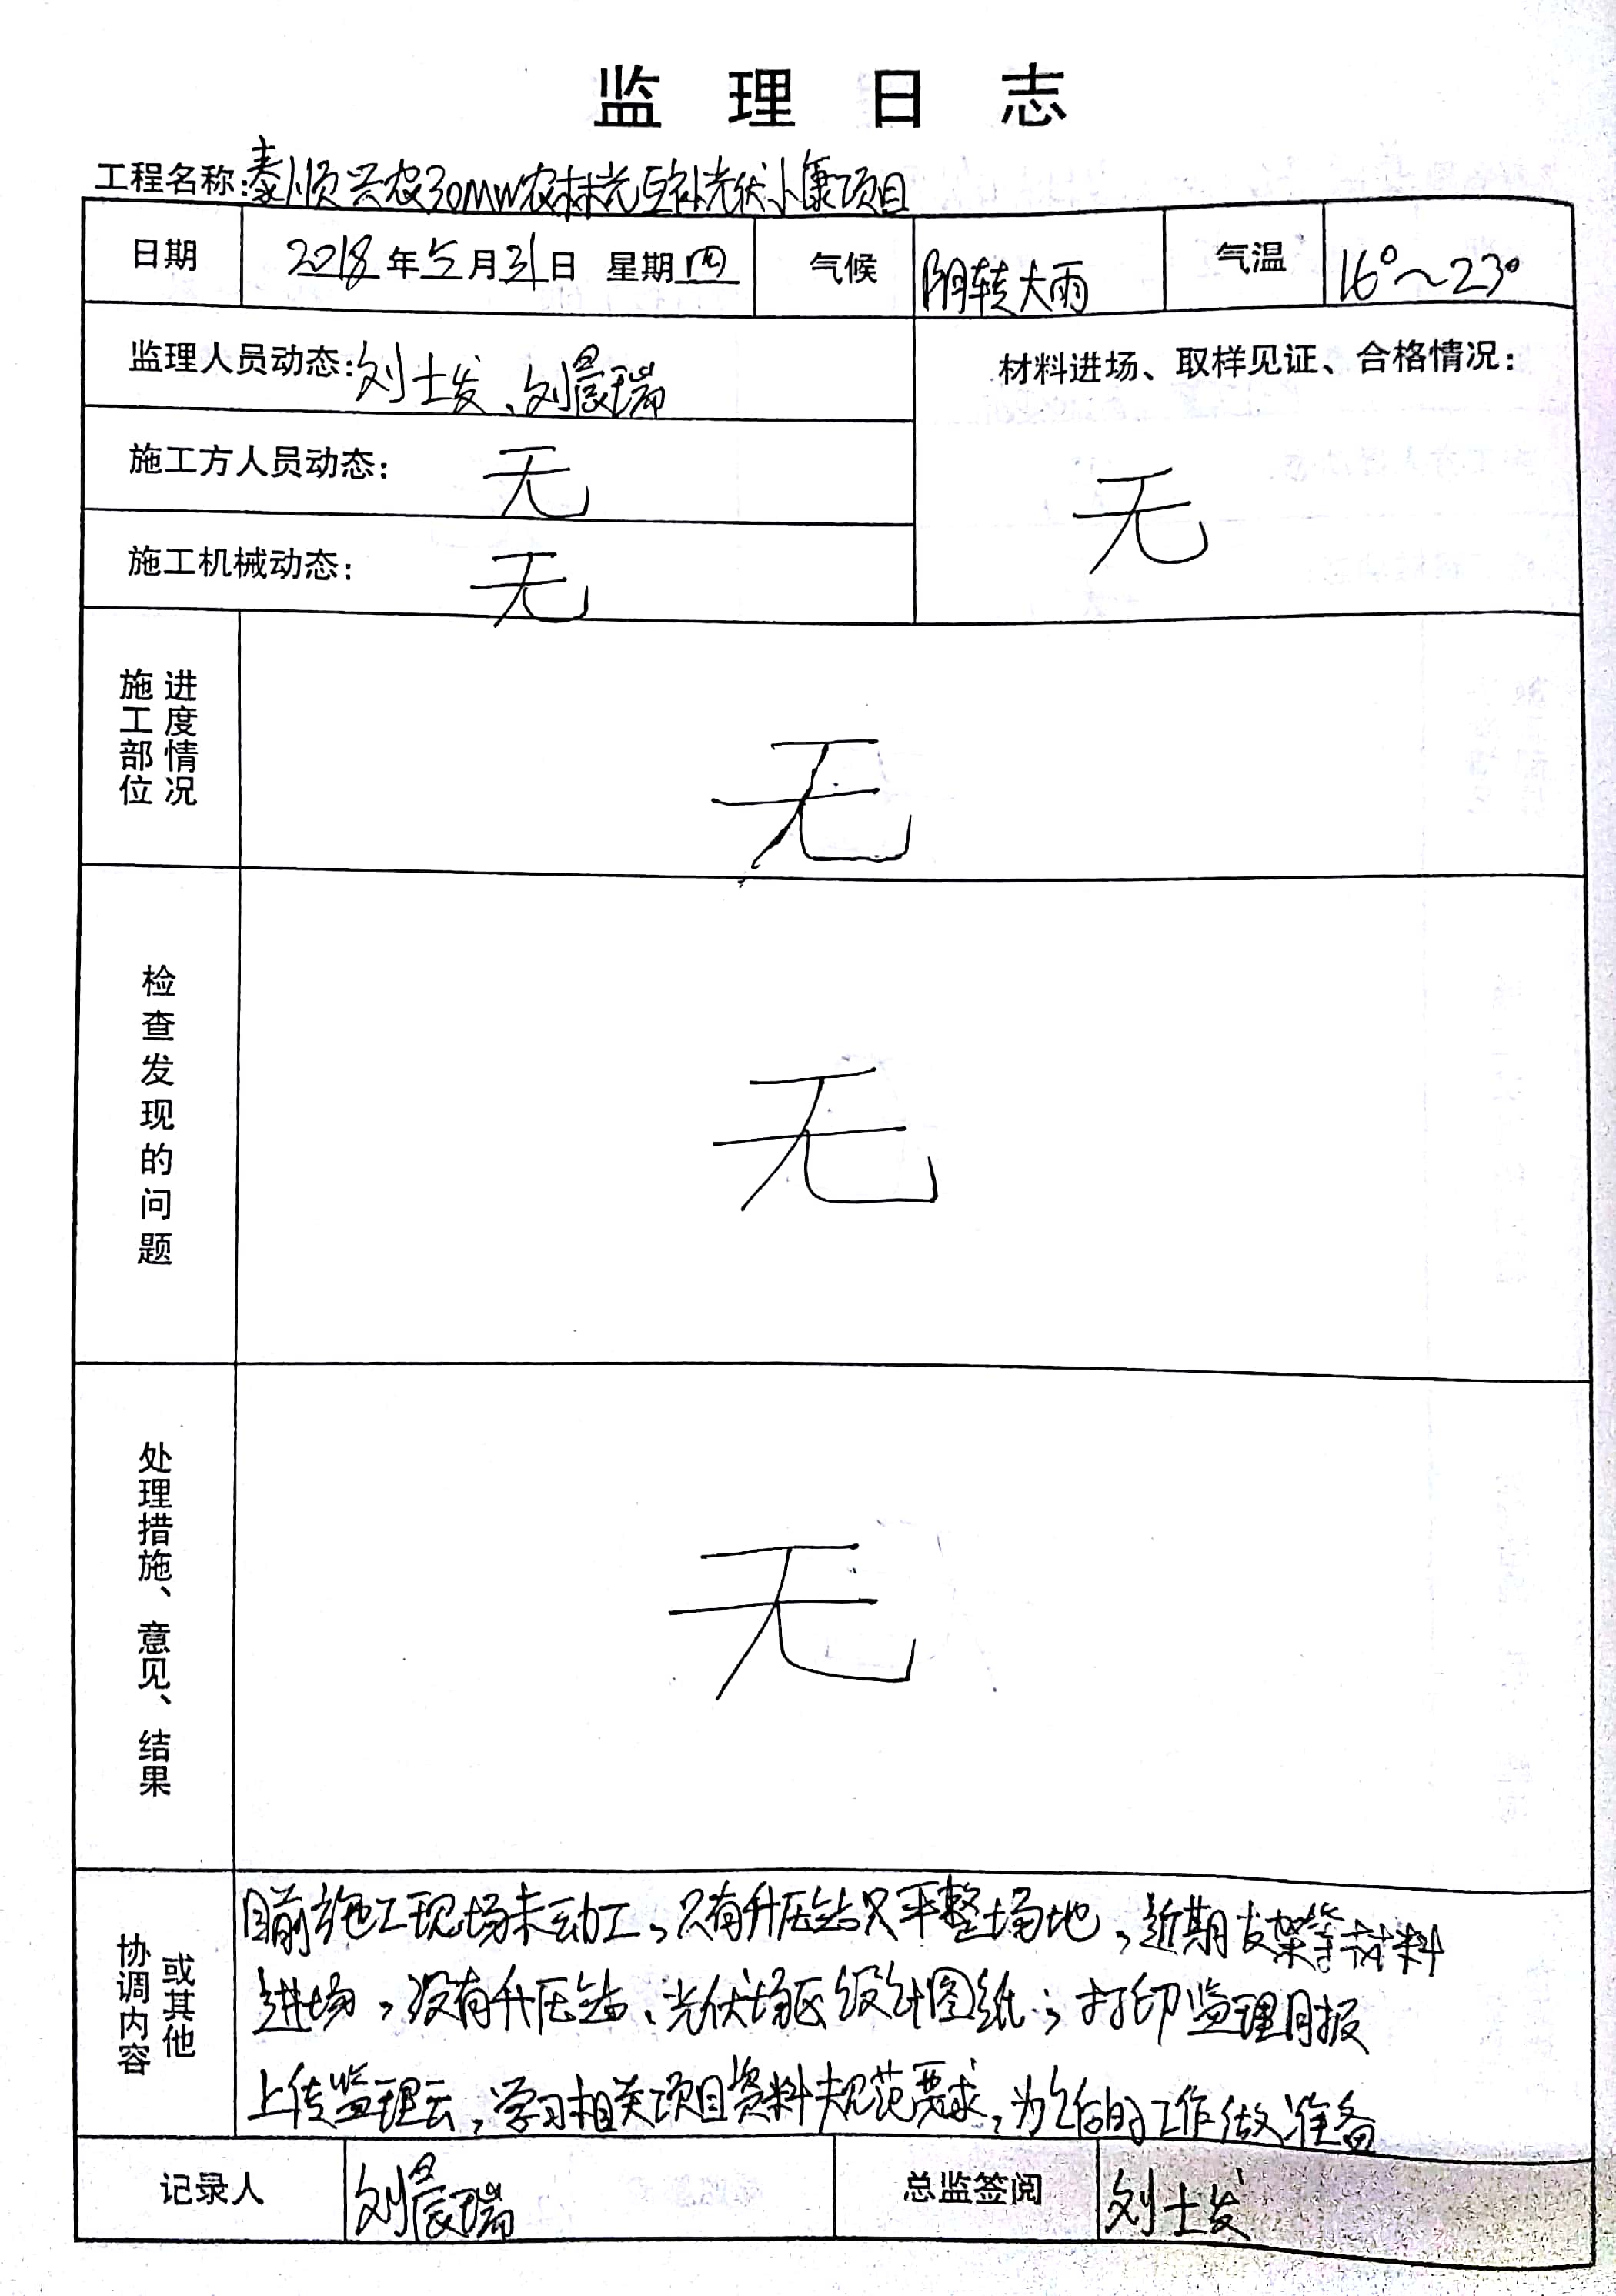 监理日志
工程名称:泰顺兴农30MW农林光互补光伏小康项目
日期 2018年5月31日 星期四 气候 阴转大雨 气温 16°~23°
监理人员动态:刘士发、刘晨瑞
材料进场、取样见证、合格情况:
无
施工方人员动态: 无
施工机械动态: 无
施工部位 进度情况
无
检查发现的问题
无
处理措施、意见、结果
无
协调内容 或其他
目前施工现场未动工,只有升压站只平整场地,近期支架等材料
进场,没有升压站、光伏场区设计图纸;打印监理月报
上传监理云,学习相关项目资料规范要求,为之后的工作做准备
记录人 刘晨瑞 总监签阅 刘士发